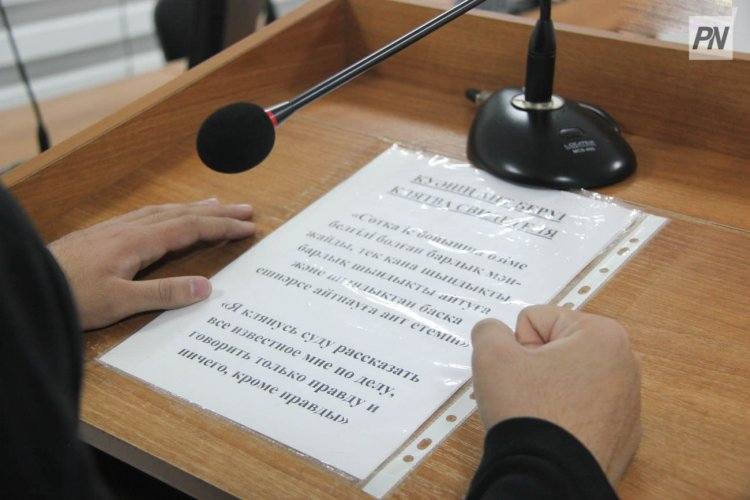 PN
КУӘНІҢ АНТ БЕРУІ
КЛЯТВА СВИДЕТЕЛЯ
«Сотқа іс бойынша өзіме
белгілі болған барлық мән-
жайды, тек қана шындықты
барлық шындықты айтуға
және шындықтан басқа
ешнәрсе айтпауға ант етемін»
«Я клянусь суду рассказать
все известное мне по делу,
говорить только правду и
ничего, кроме правды»